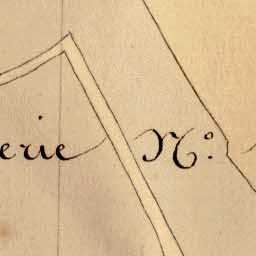 erie N.º